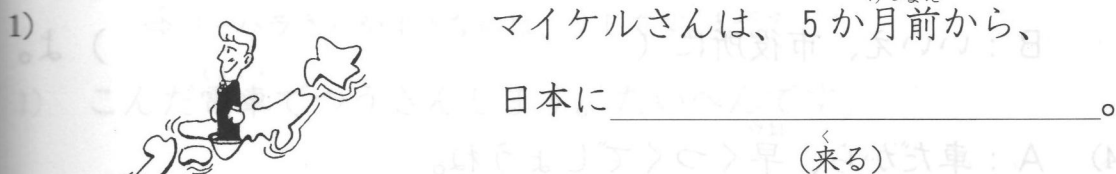 1)
マイケルさんは、5か月前から、
日本に＿＿＿＿＿＿＿＿＿＿。
(来る)
く